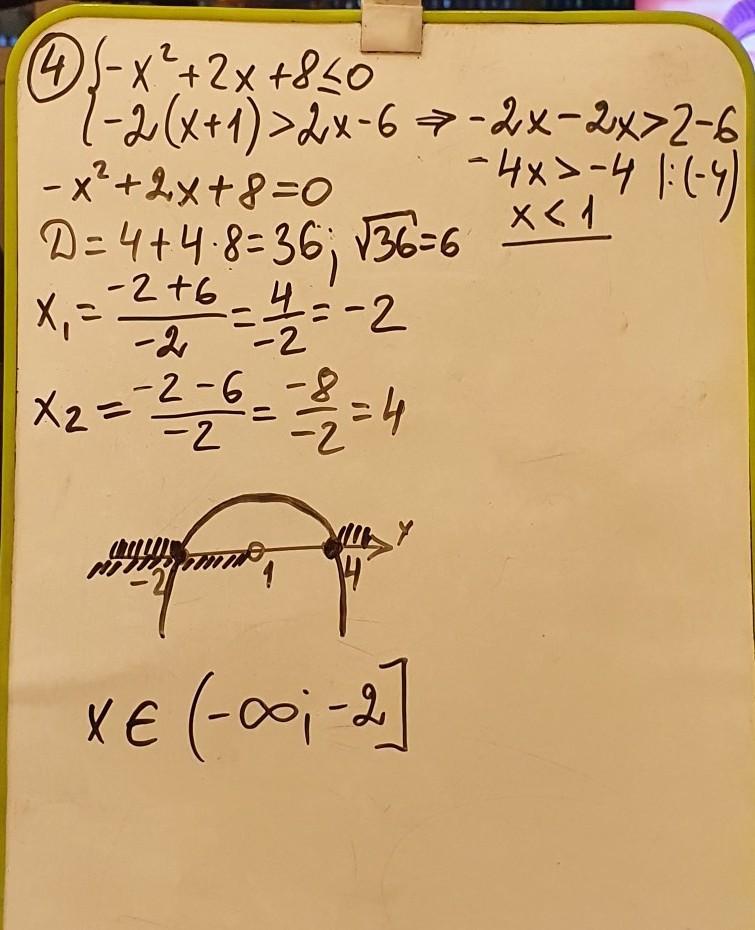 ④ { -x² + 2x + 8 ≤ 0
-2(x+1) > 2x - 6 ⇒ -2x - 2x > 2 - 6
-4x > -4 |:(-4)
x < 1
-x² + 2x + 8 = 0
D = 4 + 4·8 = 36; √36 = 6
x₁ = (-2+6)/(-2) = 4/(-2) = -2
x₂ = (-2-6)/(-2) = (-8)/(-2) = 4
-2 1 4 x
x ∈ (-∞; -2]